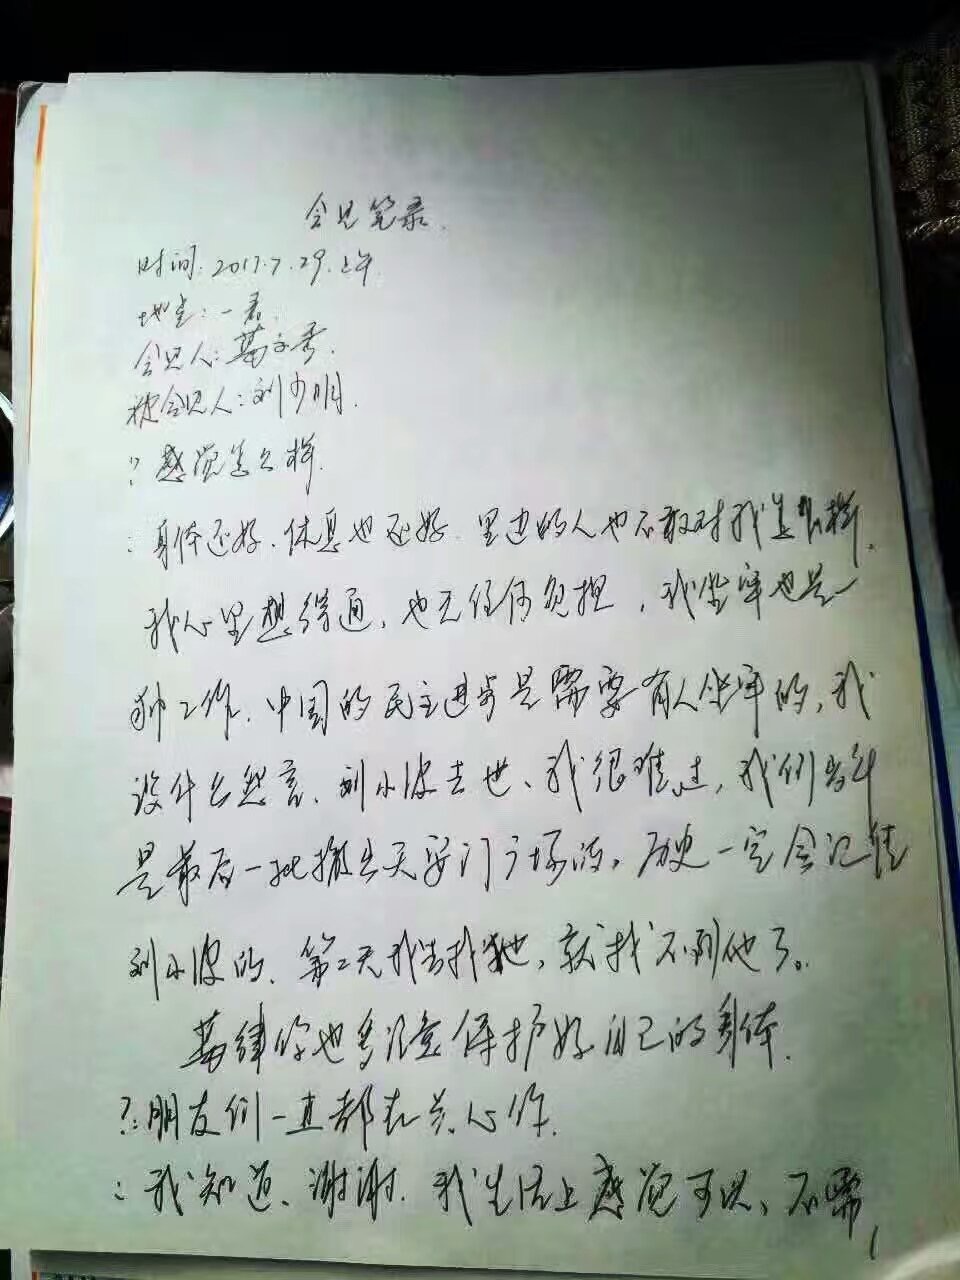 会见笔录.
时间.2017.7.29.上午
地点:一看.
会见人:葛永秀.
被会见人:刘少明.
?感觉怎么样.
:身体还好.休息也还好.里边的人也不敢对我怎样.
我心里想得通,也无任何负担,我坐牢也是一
种工作.中国的民主进步是需要有人坐牢的,我
没什么怨言、刘小波去世、我很难过,我们当年
是最后一批撤出天安门广场的,历史一定会记住
刘小波的、第二天我去找他,就找不到他了。
葛律你也多注意保护好自己的身体.
?:朋友们一直都在关心你.
:我知道、谢谢.我生活上感觉可以、不需,